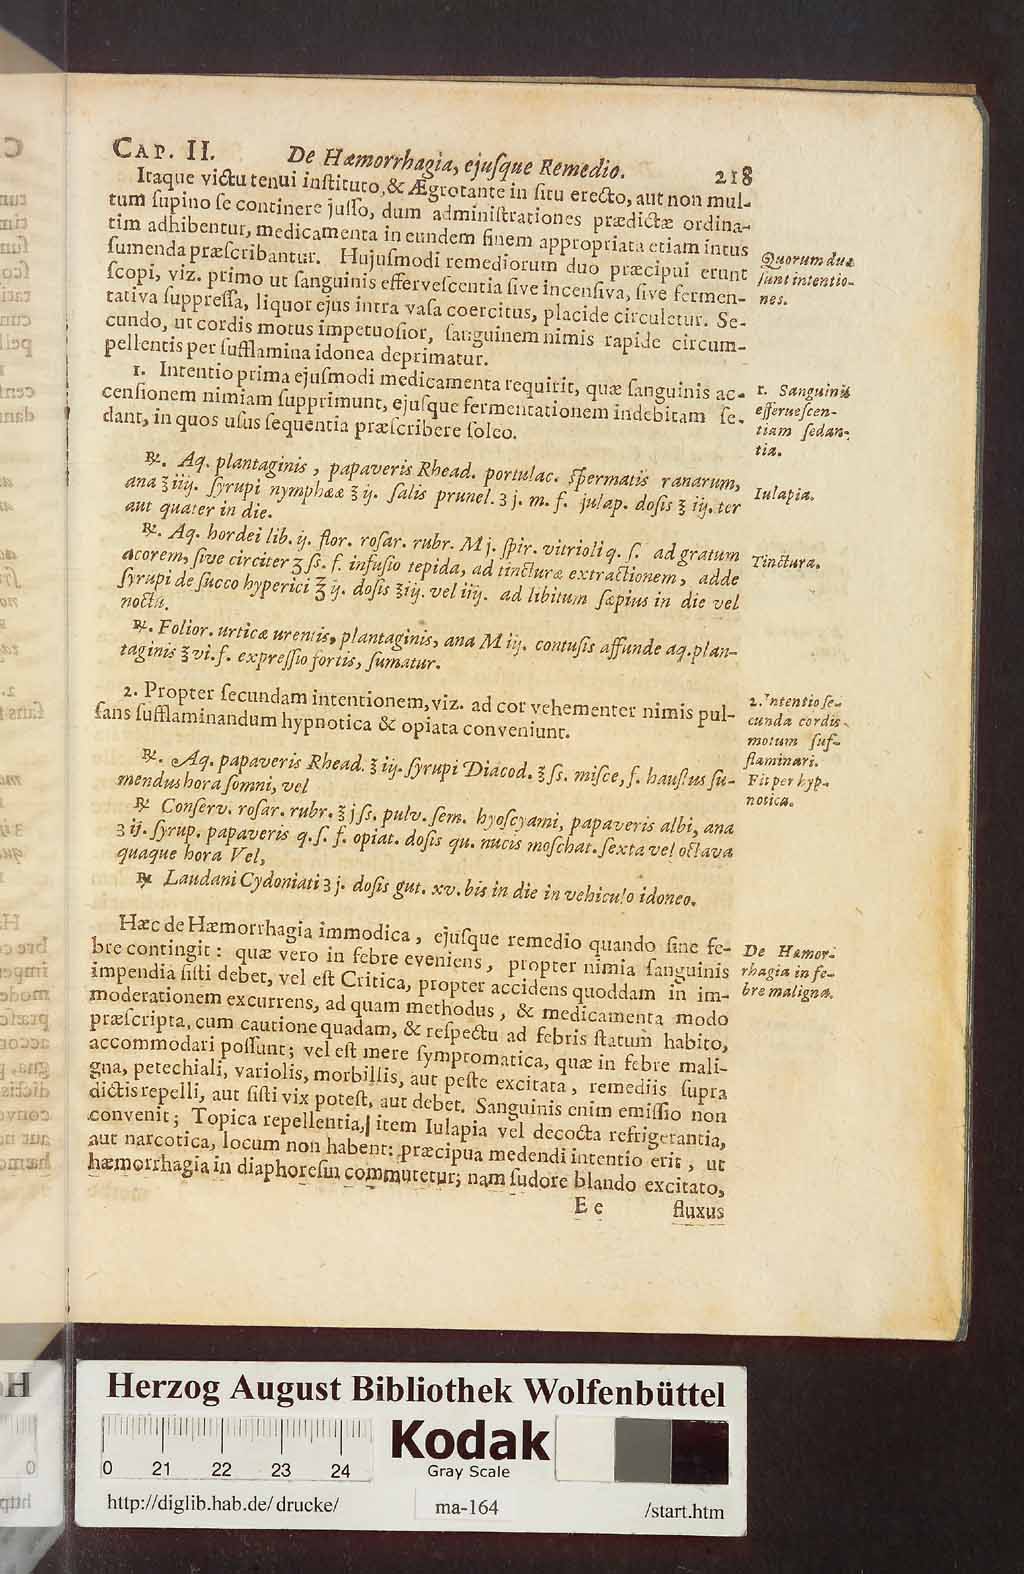 CAP. II. De Hæmorrhagia, ejuſque Remedio. 218
Itaque victu tenui inſtituto, & Ægrotante in ſitu erecto, aut non mul-
tum ſupino ſe continere juſſo, dum adminiſtrationes prædictæ ordina-
tim adhibentur, medicamenta in eundem finem appropriata etiam intus
ſumenda præſcribantur. Hujuſmodi remediorum duo præcipui erunt
ſcopi, viz. primo ut ſanguinis efferveſcentia ſive incenſiva, ſive fermen-
tativa ſuppreſſa, liquor ejus intra vaſa coercitus, placide circuletur. Se-
cundo, ut cordis motus impetuoſior, ſanguinem nimis rapide circum-
pellentis per ſufflamina idonea deprimatur.
Quorum duæ
ſunt intentio-
nes.
1. Intentio prima ejuſmodi medicamenta requirit, quæ ſanguinis ac-
cenſionem nimiam ſupprimunt, ejuſque fermentationem indebitam ſe-
dant, in quos uſus ſequentia præſcribere ſoleo.
1. Sanguinis
efferueſcen-
tiam ſedan-
tia.
℞. Aq. plantaginis, papaveris Rhead. portulac. ſpermatis ranarum,
ana ℥ iiij. ſyrupi nymphææ ℥ ij. ſalis prunel. ʒ j. m. f. julap. doſis ℥ iij. ter
aut quater in die.
Iulapia.
℞. Aq. hordei lib. ij. flor. roſar. rubr. M j. ſpir. vitrioli q. ſ. ad gratum
acorem, ſive circiter ʒ ſs. f. infuſio tepida, ad tincturæ extractionem, adde
ſyrupi de ſucco hyperici ℥ ij. doſis ℥iij. vel iiij. ad libitum ſæpius in die vel
noctu.
Tinctura.
℞. Folior. urticæ urentis, plantaginis, ana M iij. contuſis affunde aq. plan-
taginis ℥ vi. f. expreſſio fortis, ſumatur.
2. Propter ſecundam intentionem, viz. ad cor vehementer nimis pul-
ſans ſufflaminandum hypnotica & opiata conveniunt.
2. Intentio ſe-
cunda cordis
motum ſuf-
flaminari.
Fit per hyp-
notica.
℞. Aq. papaveris Rhead. ℥ iij. ſyrupi Diacod. ℥ ſs. miſce, f. hauſtus ſu-
mendus hora ſomni, vel
℞ Conſerv. roſar. rubr. ℥ j ſs. pulv. ſem. hyoſcyami, papaveris albi, ana
ʒ ij. ſyrup. papaveris q. ſ. f. opiat. doſis qu. nucis moſchat. ſexta vel octava
quaque hora Vel,
℞ Laudani Cydoniati ʒ j. doſis gut. xv. bis in die in vehiculo idoneo.
Hæc de Hæmorrhagia immodica, ejuſque remedio quando ſine fe-
bre contingit: quæ vero in febre eveniens, propter nimia ſanguinis
impendia ſiſti debet, vel eſt Critica, propter accidens quoddam in im-
moderationem excurrens, ad quam methodus, & medicamenta modo
præſcripta, cum cautione quadam, & reſpectu ad febris ſtatum habito,
accommodari poſſunt; vel eſt mere ſymptomatica, quæ in febre mali-
gna, petechiali, variolis, morbillis, aut peſte excitata, remediis ſupra
dictis repelli, aut ſiſti vix poteſt, aut debet. Sanguinis enim emiſſio non
convenit; Topica repellentia, item Iulapia vel decocta refrigerantia,
aut narcotica, locum non habent: præcipua medendi intentio erit, ut
hæmorrhagia in diaphoreſin commutetur; nam ſudore blando excitato,
De Hæmor-
rhagia in fe-
bre maligna.
E e fluxus
Herzog August Bibliothek Wolfenbüttel
Kodak
Gray Scale
0 21 22 23 24
http://diglib.hab.de/drucke/ ma-164 /start.htm